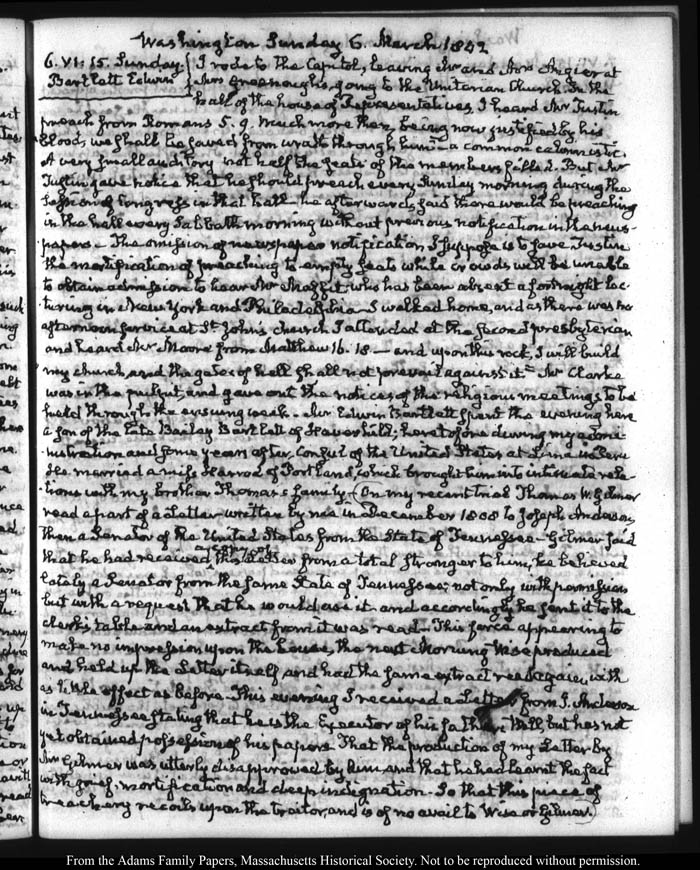 Washington Sunday 6. March 1842
6. VI:15. Sunday. I rode to the Capitol, leaving Mr and Mrs Angier at
Bartlett Edwin Mrs Greenough's, going to the Unitarian Church. In the
hall of the house of Representatives, I heard Mr Tustin
preach from Romans 5. 9. Much more then, being now justified by his
blood, we shall be saved from wrath through him—a common calvinistic.
A very small auditory not half the seats of the members filled. But Mr
Tustin gave notice that he should preach every Sunday morning during the
Session of Congress in that hall. he afterwards said there would be preaching
in the hall every Sabbath morning without previous notification in the news-
papers—The omission of newspaper notification I suppose is to save Tustin
the mortification of preaching to empty seats while crowds will be unable
to obtain admission to hear Mr Maffit who has been absent a fortnight lec-
turing in New York and Philadelphia—I walked home, and as there was no
afternoon service at St John's church I attended at the second presbyterian
and heard Mr Moore from Matthew 16. 18—and upon this rock, I will build
my church, and the gates of hell shall not prevail against it—Mr Clarke
was in the pulpit and gave out the notices of the religious meetings to be
held through the ensuing week—Mr Edwin Bartlett spent the evening here
a son of the late Bailey Bartlett of Haverhill; heretofore during my admi-
nistration and some years after, Consul of the United States at Lima in Peru
He married a Miss Harrod of Portland, which brought him into intimate rela-
tions with my brother Thomas's family—(On my recent trial Thomas W. Gilmer
read a part of a Letter written by me in December 1808 to Joseph Anderson,
then a Senator of the United States from the State of Tennessee—Gilmer said
that he had received this Letter from a total stranger to him, he believed
lately a Senator from the same State of Tennessee; not only with permission
but with a request that he would use it and accordingly he sent it to the
clerk's table and an extract from it was read—This farce appearing to
make no impression upon the house, the next morning Wise produced
and held up the Letter itself and had the same extract read again, with
as little effect as before. This evening I received a Letter from J. Anderson
in Tennessee stating that he is the Executor of his father's Will, but has not
yet obtained possession of his papers. That the production of my Letter by
Mr Gilmer was utterly disapproved by him and that he had learnt the fact
with grief, mortification and deep indignation. So that this piece of
treachery recoils upon the traitor, and is of no avail to Wise or Gilmer.)
From the Adams Family Papers, Massachusetts Historical Society. Not to be reproduced without permission.